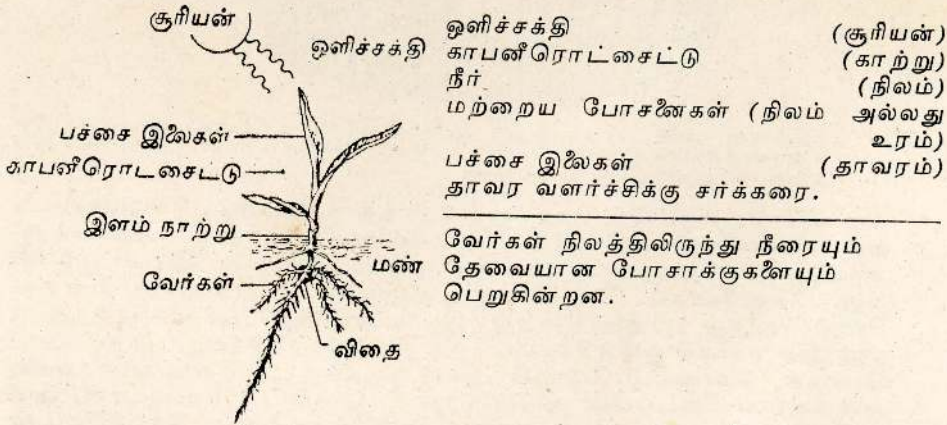 சூரியன்
ஒளிச்சக்தி
பச்சை இலைகள்
காபனீரொட்சைட்டு
இளம் நாற்று
வேர்கள்
மண்
விதை
ஒளிச்சக்தி (சூரியன்)
காபனீரொட்சைட்டு (காற்று)
நீர் (நிலம்)
மற்றைய போசணைகள் (நிலம் அல்லது
உரம்)
பச்சை இலைகள் (தாவரம்)
தாவர வளர்ச்சிக்கு சர்க்கரை.
வேர்கள் நிலத்திலிருந்து நீரையும்
தேவையான போசாக்குகளையும்
பெறுகின்றன.